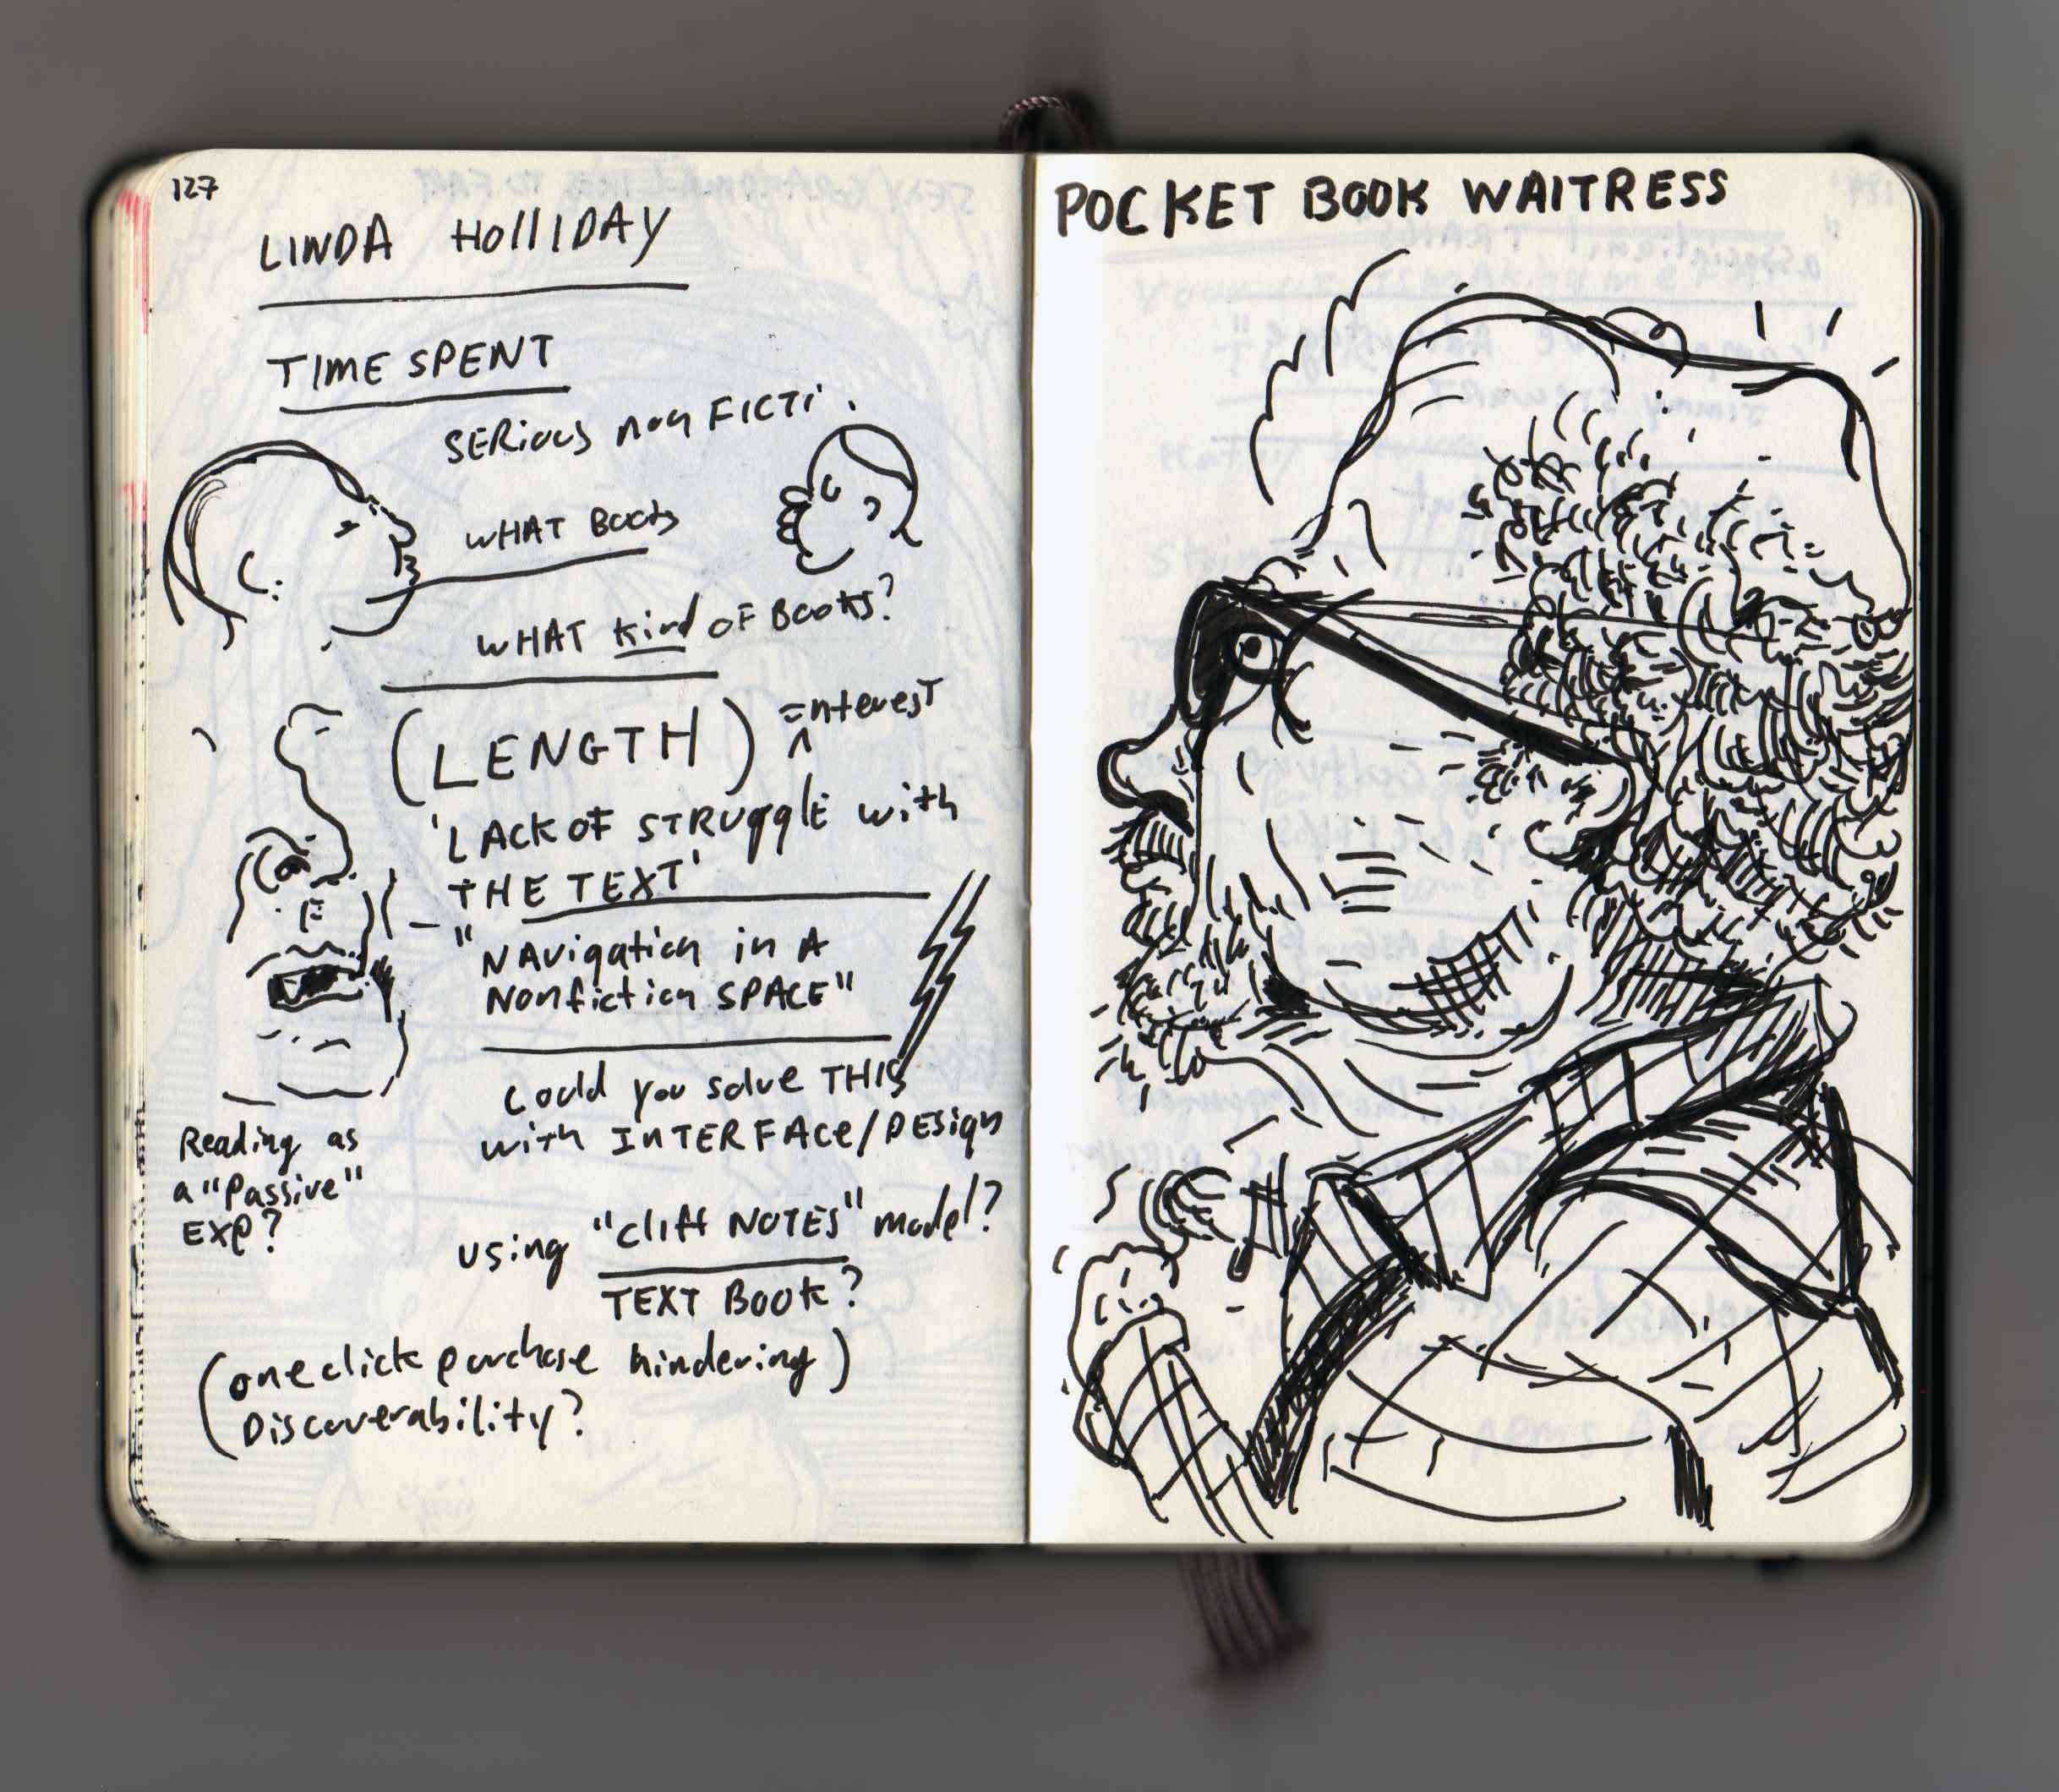 127
LINDA HOLLIDAY
TIME SPENT
SERIOUS NON FICTI.
WHAT BOOKS
WHAT KIND OF BOOKS?
(LENGTH) = INTEREST
'LACK OF STRUGGLE with
THE TEXT'
"NAVigation in A
Nonfiction SPACE"
Could you solve THIS
with INTERFACE/DESign
Reading as
a "Passive"
EXP?
using "Cliff NOTES" model?
TEXT BOOK?
(one click purchase hindering)
Discoverability?
POCKET BOOK WAITRESS